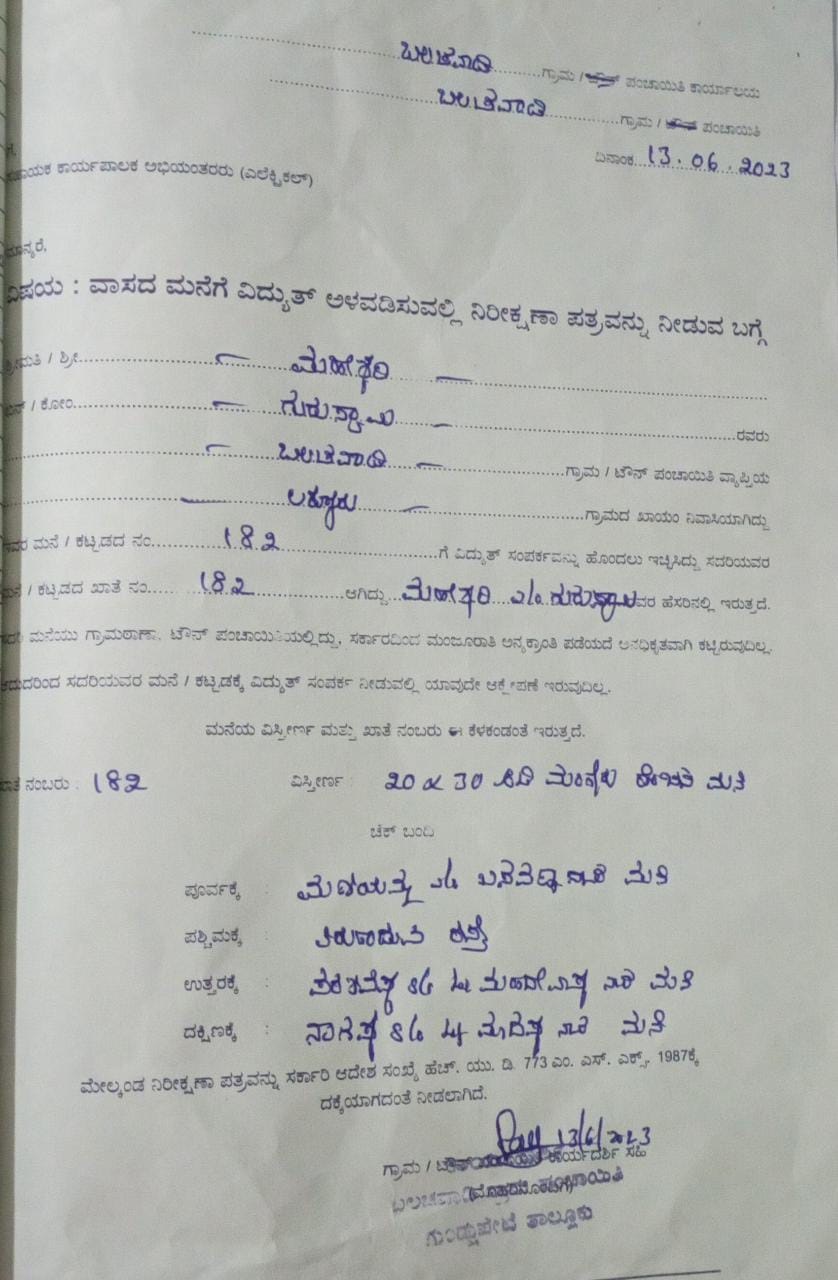 ಬಲಚವಾಡಿ ಗ್ರಾಮ / ಪಂಚಾಯಿತಿ ಕಾರ್ಯಾಲಯ
ಬಲಚವಾಡಿ ಗ್ರಾಮ / ಪಂಚಾಯಿತಿ
ದಿನಾಂಕ 13.06.2023
ಗೆ,
ಸಹಾಯಕ ಕಾರ್ಯಪಾಲಕ ಅಭಿಯಂತರರು (ಎಲೆಕ್ಟ್ರಿಕಲ್)
ಮಾನ್ಯರೆ,
ವಿಷಯ : ವಾಸದ ಮನೆಗೆ ವಿದ್ಯುತ್ ಅಳವಡಿಸುವಲ್ಲಿ ನಿರೀಕ್ಷಣಾ ಪತ್ರವನ್ನು ನೀಡುವ ಬಗ್ಗೆ
ಶ್ರೀಮತಿ / ಶ್ರೀ ಮಹೇಶ್ವರಿ
ಬಿನ್ / ಕೋಂ ಗುರುಸ್ವಾಮಿ ರವರು
ಬಲಚವಾಡಿ ಗ್ರಾಮ / ಟೌನ್ ಪಂಚಾಯಿತಿ ವ್ಯಾಪ್ತಿಯ
ಲಕ್ಕೂರು ಗ್ರಾಮದ ಖಾಯಂ ನಿವಾಸಿಯಾಗಿದ್ದು
ಇವರ ಮನೆ / ಕಟ್ಟಡದ ನಂ 182 ಗೆ ವಿದ್ಯುತ್ ಸಂಪರ್ಕವನ್ನು ಹೊಂದಲು ಇಚ್ಛಿಸಿದ್ದು ಸದರಿಯವರ
ಮನೆ / ಕಟ್ಟಡದ ಖಾತೆ ನಂ 182 ಆಗಿದ್ದು ಮಹೇಶ್ವರಿ ಗುರುಸ್ವಾಮಿ ವರ ಹೆಸರಿನಲ್ಲಿ ಇರುತ್ತದೆ.
ಸದರಿ ಮನೆಯು ಗ್ರಾಮಠಾಣಾ, ಟೌನ್ ಪಂಚಾಯಿತಿಯಲ್ಲಿದ್ದು, ಸರ್ಕಾರದಿಂದ ಮಂಜೂರಾತಿ ಅನ್ಯಕ್ರಾಂತಿ ಪಡೆಯದೆ ಅನಧಿಕೃತವಾಗಿ ಕಟ್ಟಿರುವುದಿಲ್ಲ.
ಆದುದರಿಂದ ಸದರಿಯವರ ಮನೆ / ಕಟ್ಟಡಕ್ಕೆ ವಿದ್ಯುತ್ ಸಂಪರ್ಕ ನೀಡುವಲ್ಲಿ ಯಾವುದೇ ಆಕ್ಷೇಪಣೆ ಇರುವುದಿಲ್ಲ.
ಮನೆಯ ವಿಸ್ತೀರ್ಣ ಮತ್ತು ಖಾತೆ ನಂಬರು ಈ ಕೆಳಕಂಡಂತೆ ಇರುತ್ತದೆ.
ಖಾತೆ ನಂಬರು : 182 ವಿಸ್ತೀರ್ಣ : 20 x 30 ಅಡಿ ಮಂಗಳೂರು ಹೆಂಚಿನ ಮನೆ
ಚೆಕ್ ಬಂದಿ
ಪೂರ್ವಕ್ಕೆ : ಮನೆ
ಪಶ್ಚಿಮಕ್ಕೆ : ತಿರುಗಾಡುವ ರಸ್ತೆ
ಉತ್ತರಕ್ಕೆ : ಮಹದೇವಪ್ಪ ಮನೆ
ದಕ್ಷಿಣಕ್ಕೆ : ನಾಗಪ್ಪ ಮಾದಪ್ಪ ಮನೆ
ಮೇಲ್ಕಂಡ ನಿರೀಕ್ಷಣಾ ಪತ್ರವನ್ನು ಸರ್ಕಾರಿ ಆದೇಶ ಸಂಖ್ಯೆ ಹೆಚ್. ಯು. ಡಿ. 773 ಎಂ. ಎಸ್. ಎಕ್ಸ್. 1987ಕ್ಕೆ
ದಕ್ಕೆಯಾಗದಂತೆ ನೀಡಲಾಗಿದೆ.
13/6/2023
ಗ್ರಾಮ / ಟೌನ್ ಕಾರ್ಯದರ್ಶಿ ಸಹಿ
(ಮೊಹರಿನೊಂದಿಗೆ)
ಬಲಚವಾಡಿ ಪಂಚಾಯಿತಿ
ಗುಂಡ್ಲುಪೇಟೆ ತಾಲ್ಲೂಕು